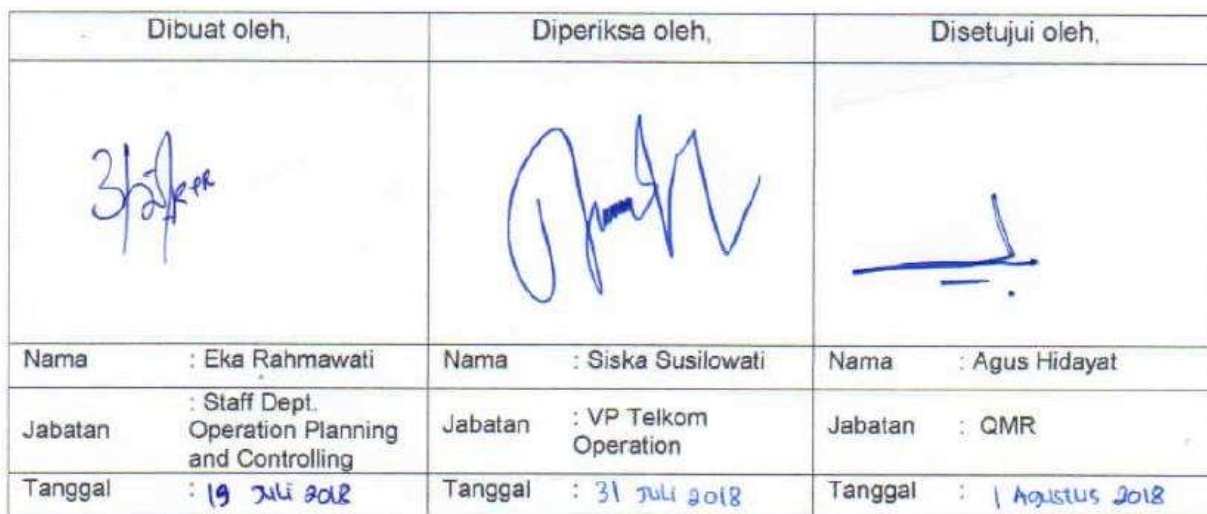 Dibuat oleh,
Diperiksa oleh,
Disetujui oleh,
Nama : Eka Rahmawati
Nama : Siska Susilowati
Nama : Agus Hidayat
Jabatan : Staff Dept.
Operation Planning
and Controlling
Jabatan : VP Telkom
Operation
Jabatan : QMR
Tanggal : 19 Juli 2018
Tanggal : 31 Juli 2018
Tanggal : 1 Agustus 2018